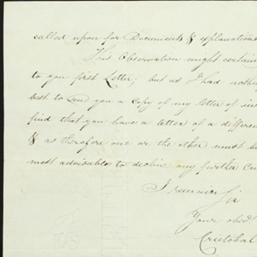 called upon for Documents & explanations
This Observation might
to you first Letter; but as I had nothing
best to send you a Copy of my letter of
find that you have a letter of a differen
& as therefore one or the other must be
most adviseable to decline any further
I remain Sir
Your obed
Cristobal